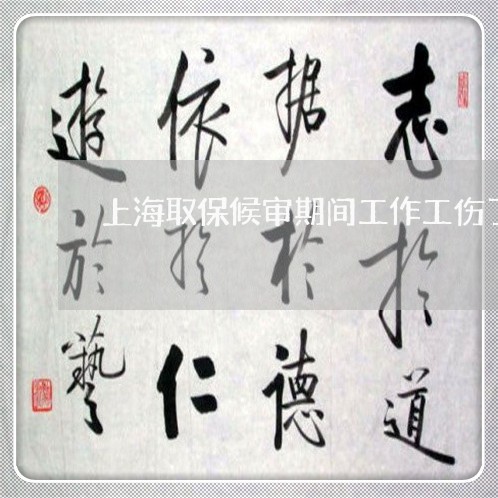 志於道
据於德
依於仁
遊於藝
上海取保候审期间工作工伤